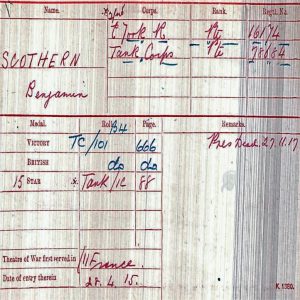 Name. Corps. Rank. Regtl. No.
SCOTHERN E York R Pte 16174
Benjamin Tank Corps Pte 78684
Medal. Roll. Page. Remarks.
VICTORY TC/101 B4 666 Pres Dead 27.11.17
BRITISH do do
15 STAR Tank/1C 88
Theatre of War first served in (1) France.
Date of entry therein 28.4.15.
K. 1380.